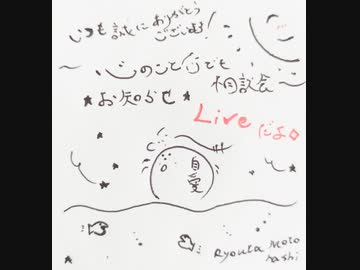 いつも誠にありがとう
ございます!
〜心のこと何でも
相談会〜
★お知らせ★
Liveだよ◇
自愛
Ryouta Moto
hashi